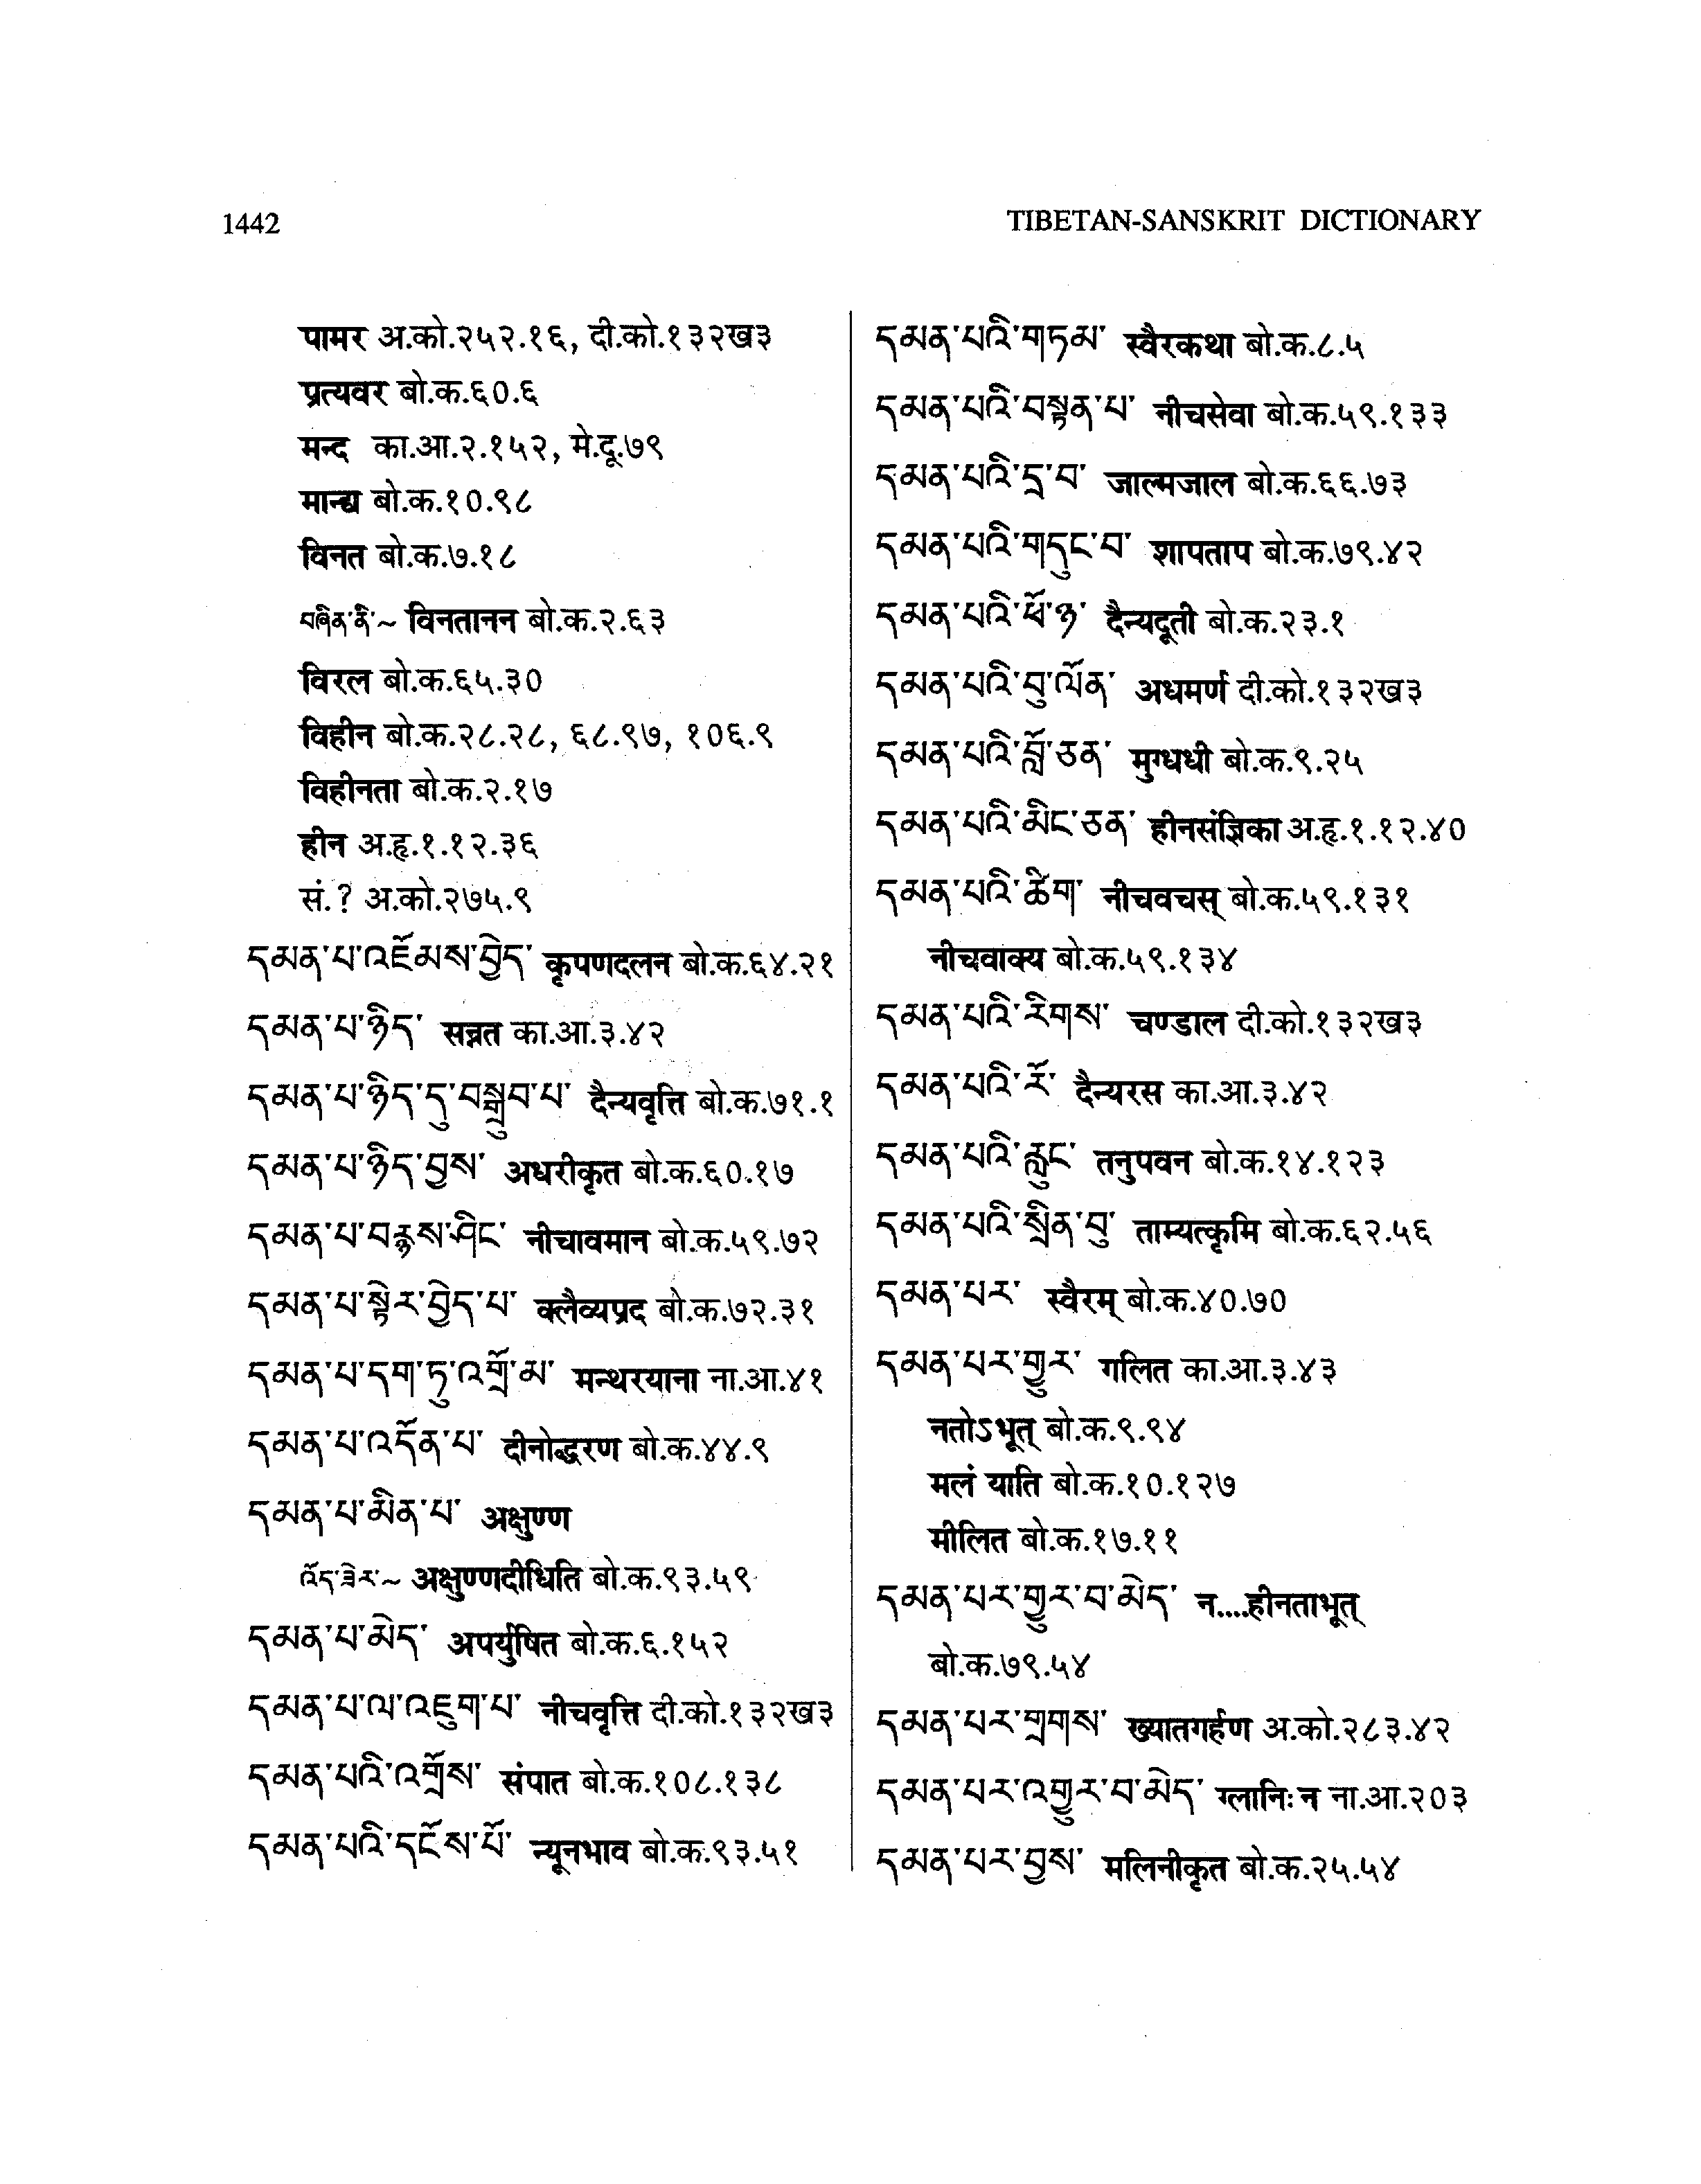 1442
TIBETAN-SANSKRIT DICTIONARY
पामर अ.को.२५२.१६, दी.को.१३२ख३
प्रत्यवर बो.क.६०.६
मन्द का.आ.२.१५२, मे.दू.७९
मान्द्य बो.क.१०.९८
विनत बो.क.७.१८
བཞིན་ནི་~ विनतानन बो.क.२.६३
विरल बो.क.६५.३०
विहीन बो.क.२८.२८, ६८.९७, १०६.९
विहीनता बो.क.२.१७
हीन अ.हृ.१.१२.३६
सं.? अ.को.२७५.९
དམན་པ་འཇོམས་བྱེད་ कृपणदलन बो.क.६४.२१
དམན་པ་ཉིད་ सन्नत का.आ.३.४२
དམན་པ་ཉིད་དུ་བསྒྲུབ་པ་ दैन्यवृत्ति बो.क.७१.१
དམན་པ་ཉིད་བྱས་ अधरीकृत बो.क.६०.१७
དམན་པ་བརྙས་ཤིང་ नीचावमान बो.क.५९.७२
དམན་པ་སྟེར་བྱེད་པ་ क्लैव्यप्रद बो.क.७२.३१
དམན་པ་དག་ཏུ་འགྲོ་མ་ मन्थरयाना ना.आ.४१
དམན་པ་འདོན་པ་ दीनोद्धरण बो.क.४४.९
དམན་པ་མིན་པ་ अक्षुण्ण
འོད་ཟེར་~ अक्षुण्णदीधिति बो.क.९३.५९
དམན་པ་མེད་ अपर्युषित बो.क.६.१५२
དམན་པ་ལ་འཇུག་པ་ नीचवृत्ति दी.को.१३२ख३
དམན་པའི་འགྲོས་ संपात बो.क.१०८.१३८
དམན་པའི་དངོས་པོ་ न्यूनभाव बो.क.९३.५१
དམན་པའི་གཏམ་ स्वैरकथा बो.क.८.५
དམན་པའི་བསྟན་པ་ नीचसेवा बो.क.५९.१३३
དམན་པའི་དྲ་བ་ जाल्मजाल बो.क.६६.७३
དམན་པའི་གདུང་བ་ शापताप बो.क.७९.४२
དམན་པའི་ཕོ་ཉ་ दैन्यदूती बो.क.२३.१
དམན་པའི་བུ་ལོན་ अधमर्ण दी.को.१३२ख३
དམན་པའི་བློ་ཅན་ मुग्धधी बो.क.९.२५
དམན་པའི་མིང་ཅན་ हीनसंज्ञिका अ.हृ.१.१२.४०
དམན་པའི་ཚིག་ नीचवचस् बो.क.५९.१३१
नीचवाक्य बो.क.५९.१३४
དམན་པའི་རིགས་ चण्डाल दी.को.१३२ख३
དམན་པའི་རོ་ दैन्यरस का.आ.३.४२
དམན་པའི་རླུང་ तनुपवन बो.क.१४.१२३
དམན་པའི་སྲིན་བུ་ ताम्यत्कृमि बो.क.६२.५६
དམན་པར་ स्वैरम् बो.क.४०.७०
དམན་པར་གྱུར་ गलित का.आ.३.४३
नतोऽभूत् बो.क.९.९४
मलं याति बो.क.१०.१२७
मीलित बो.क.१७.११
དམན་པར་གྱུར་བ་མེད་ न....हीनताभूत्
बो.क.७९.५४
དམན་པར་གྲགས་ ख्यातगर्हण अ.को.२८३.४२
དམན་པར་འགྱུར་བ་མེད་ ग्लानिः न ना.आ.२०३
དམན་པར་བྱས་ मलिनीकृत बो.क.२५.५४